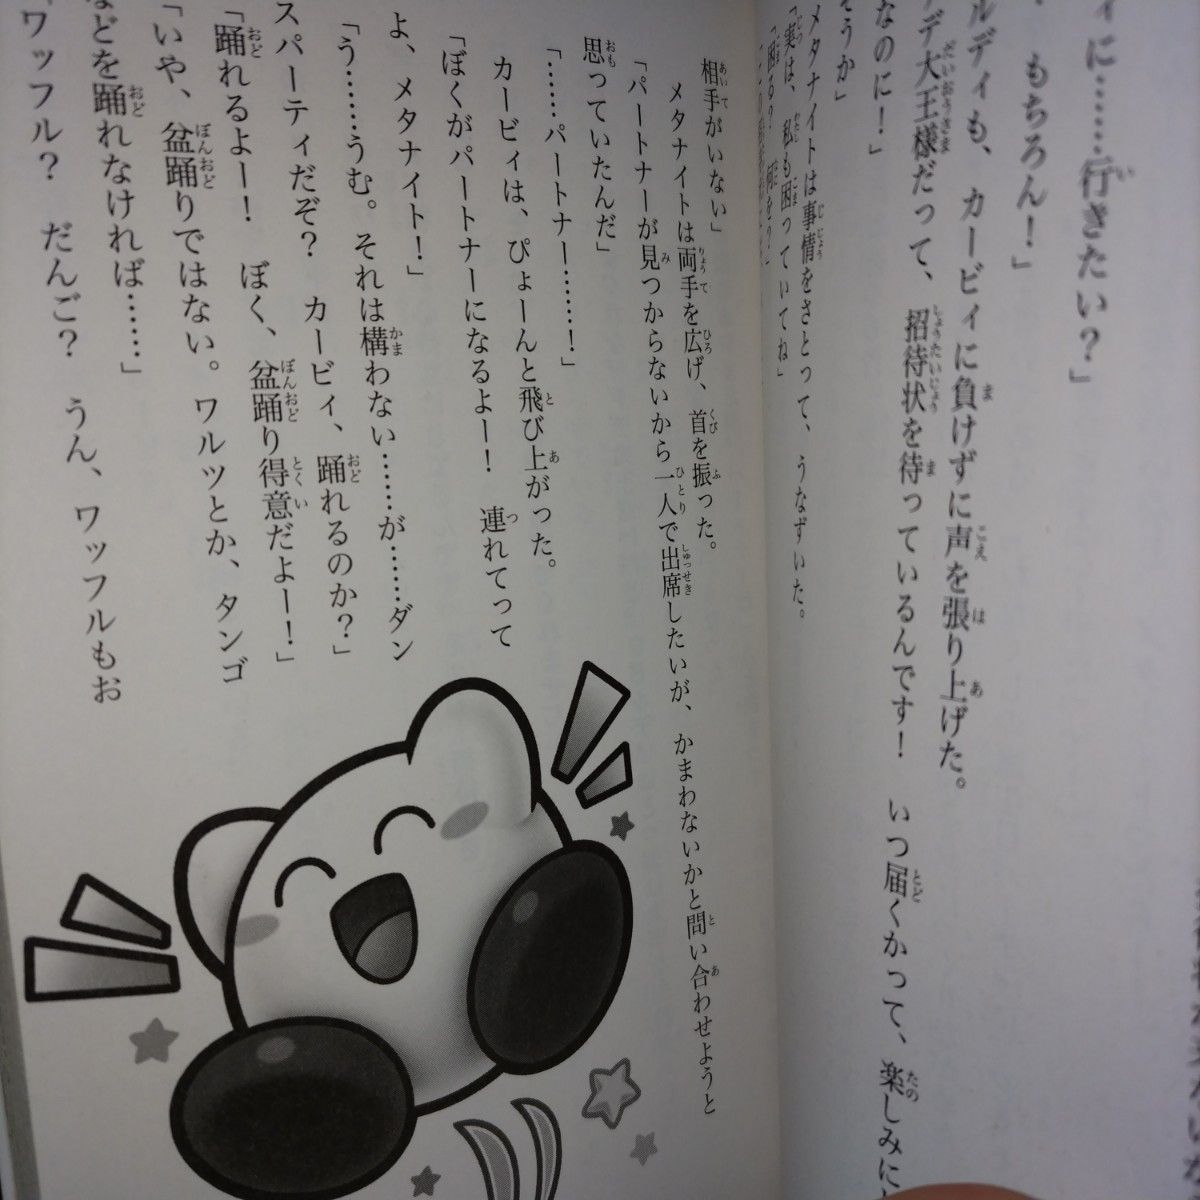 ィに……行きたい？」
もちろん！」
ルディも、カービィに負けずに声を張り上げた。
デデ大王様だって、招待状を待っているんです！　いつ届くかって、楽しみに
なのに！」
そうか」
メタナイトは事情をさとって、うなずいた。
「実は、私も困っていてね」
「困る？　何を？」
相手がいない」
メタナイトは両手を広げ、首を振った。
「パートナーが見つからないから一人で出席したいが、かまわないかと問い合わせようと
思っていたんだ」
「……パートナー……！」
カービィは、ぴょーんと飛び上がった。
「ぼくがパートナーになるよー！　連れてって
よ、メタナイト！」
「う……うむ。それは構わない……が……ダン
スパーティだぞ？　カービィ、踊れるのか？」
「踊れるよー！　ぼく、盆踊り得意だよー！」
「いや、盆踊りではない。ワルツとか、タンゴ
などを踊れなければ……」
「ワッフル？　だんご？　うん、ワッフルもお